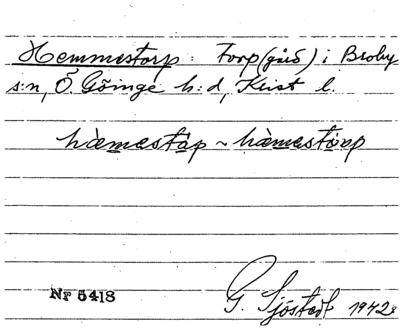 Hemmestorp: Torp (gård) i Broby
s:n, Ö. Göinge h:d, Krist l.
hàmestap ~ hàmestårp
Nr 5418
G. Sjöstedt 1942